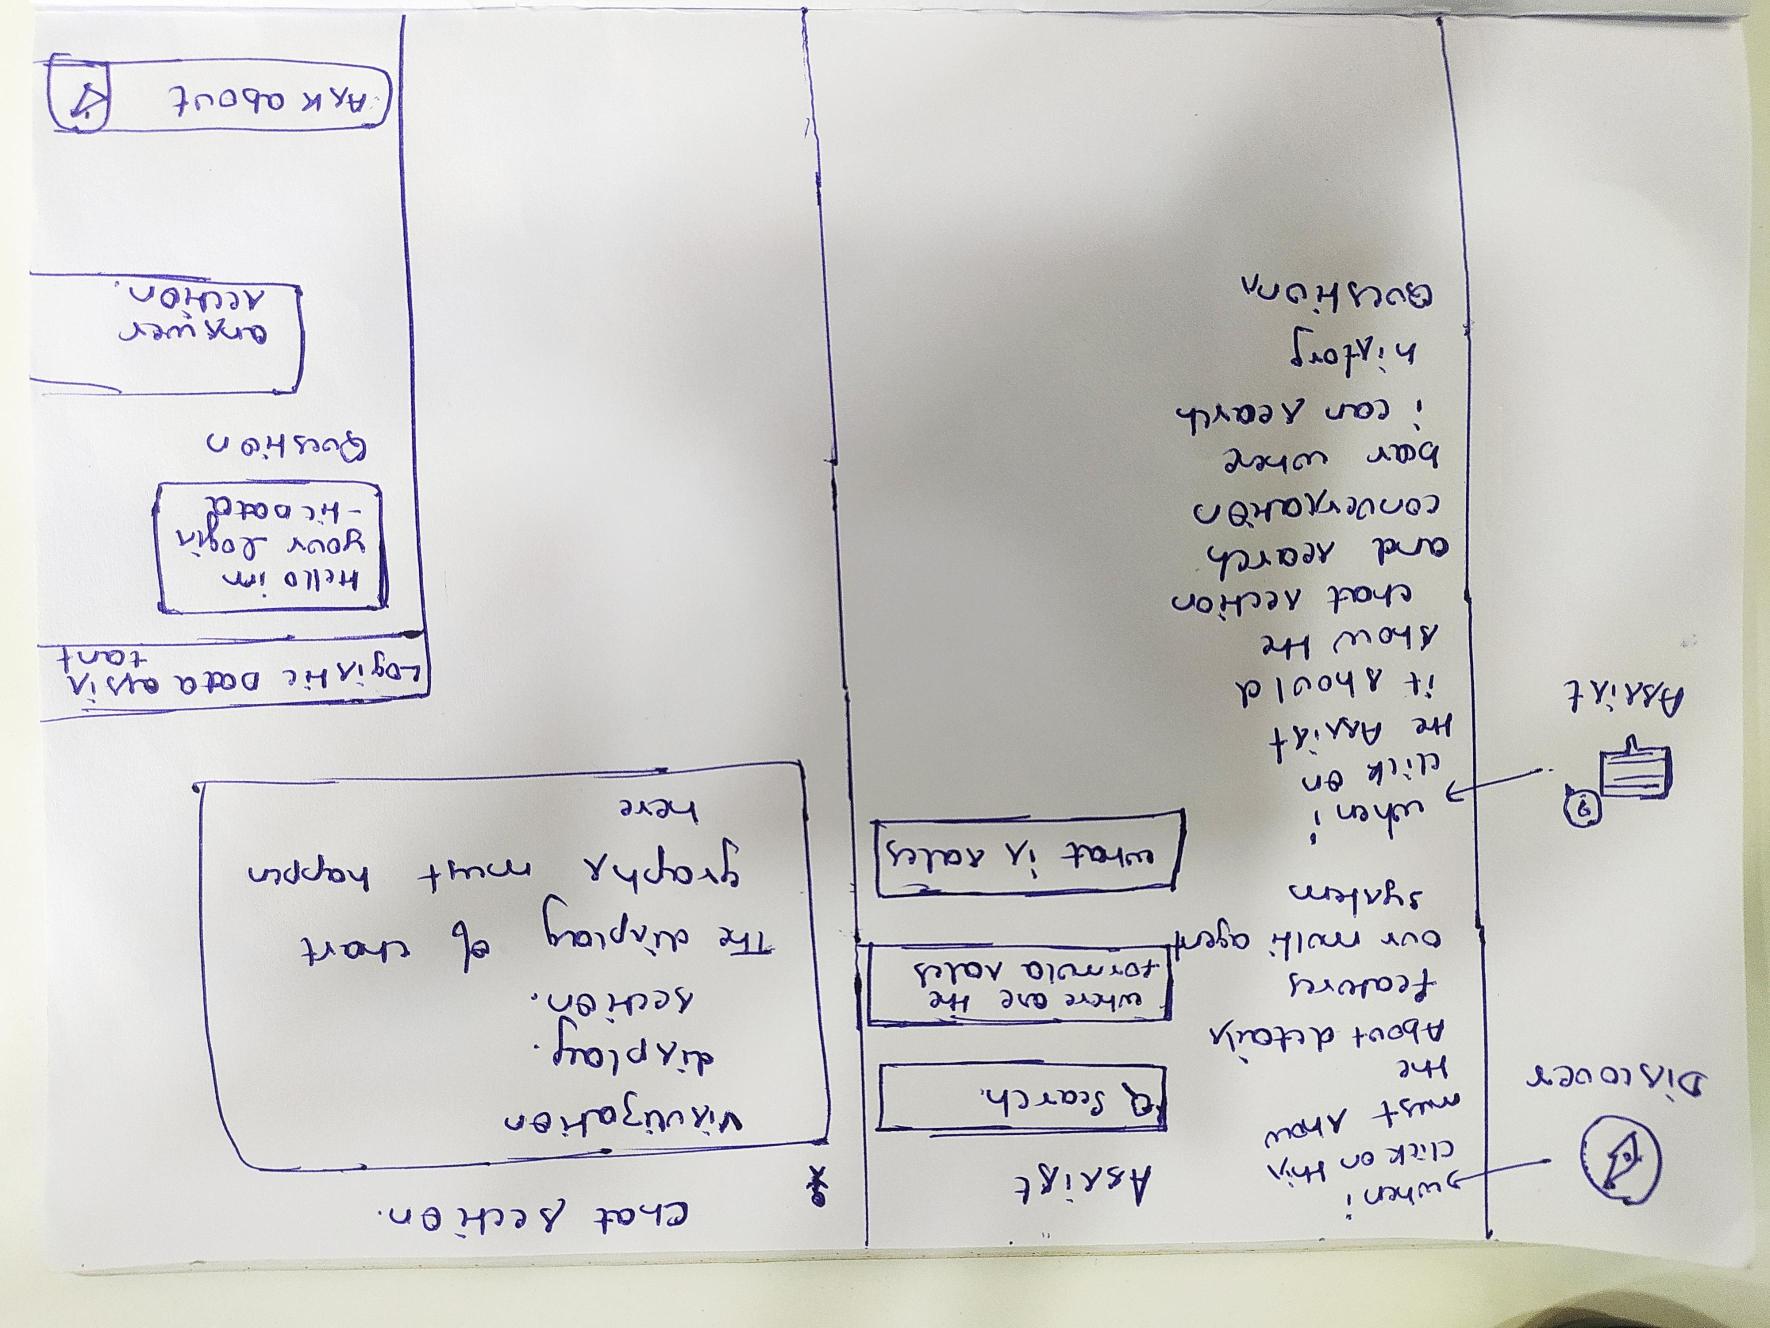 Discover
Assist
when i
click on this
must show
the
About details
features
our multi agent
system
when i
click on
the Assist
it should
show the
chat section
and search
conversation
bar where
i can search
history
Questions
Assist
Search.
where are the
formula sales
what is sales
chat section.
visulization
display.
section.
The display of chart
graphs must happen
here
Logistic Data assis
tant
Hello im
your logis
-tic Data
Question
answer
section.
Ask about